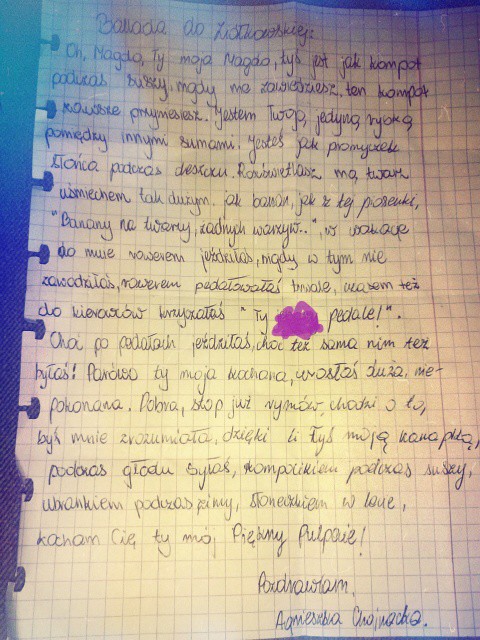 Ballada do Ziółkowskiej:
Oh, Magdo, Ty moja Magdo, tyś jest jak kompot
podczas suszy, nigdy nie zawiedziesz, ten kompot
zawsze przyniesiesz. Jestem Twoją, jedyną rybką
pomiędzy innymi sumami. Jesteś jak promyczek
słońca podczas deszczu. Rozświetlasz mą twarz
uśmiechem tak dużym, jak banan, jak z tej piosenki,
"Banany na twarzy, żadnych warzyw..", w wakacje
do mnie rowerem jeździłaś, nigdy w tym nie
zawodziłaś, rowerem pedałowałaś trwale, czasem też
do kierowców krzyczałaś "Ty pedale!".
Choć po pedałach jeździłaś, choć też sama nim też
byłaś! Parówo ty moja kochana, urosłaś duża, nie-
pokonana. Dobra, stop już rymów, chodzi o to,
byś mnie zrozumiała, dzięki Ci tyś moją kanapką,
podczas głodu byłaś, kompocikiem podczas suszy,
ubrankiem podczas zimy, słoneczkiem w love,
kocham Cię ty mój Piękny Pulpecie!
Pozdrawiam,
Agnieszka Chojnacka.